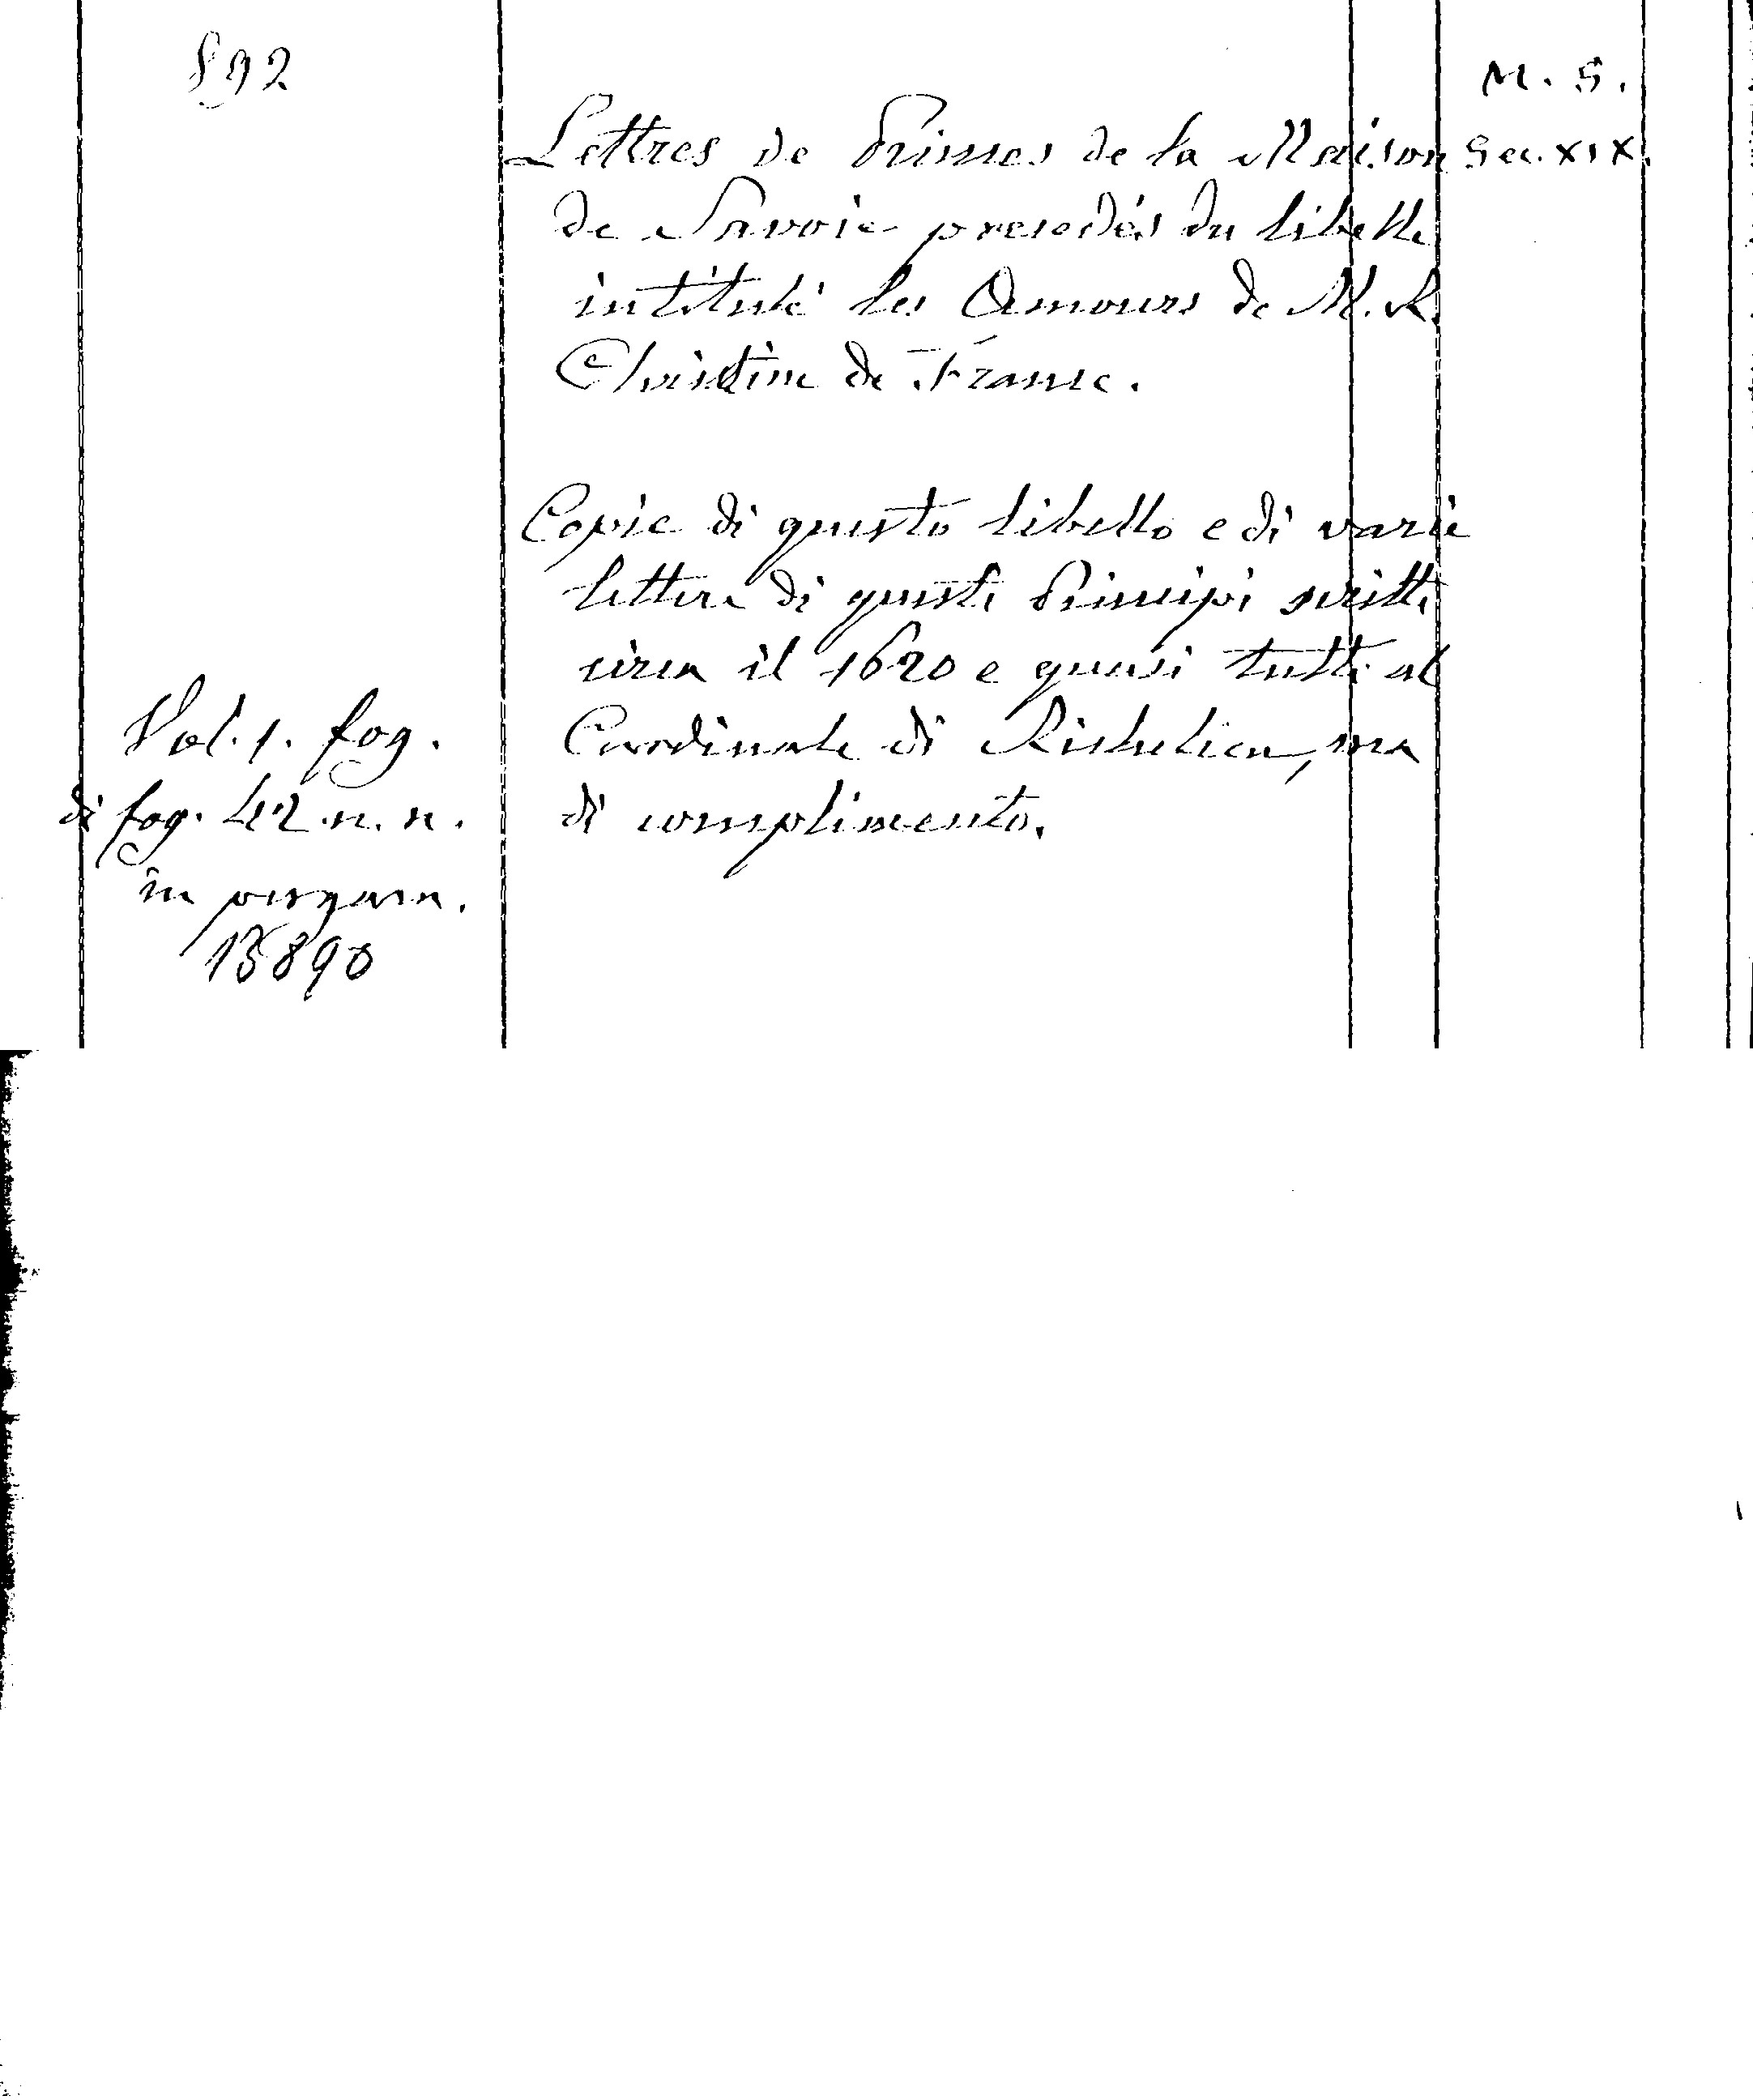 892
M. S.
Lettres de Princes de la Maison Sec. XIX.
de Savoie precedés du libelle
intitulé les Amours de M. R.
Christine de France.
Copie di questo libello e di varie
lettere di questi Principi scritte
circa il 1620 e quasi tutte al
Cardinale di Richelieu, ma
di complimento.
Vol. 1. fog.
di fog. 42 n. n.
in pergam.